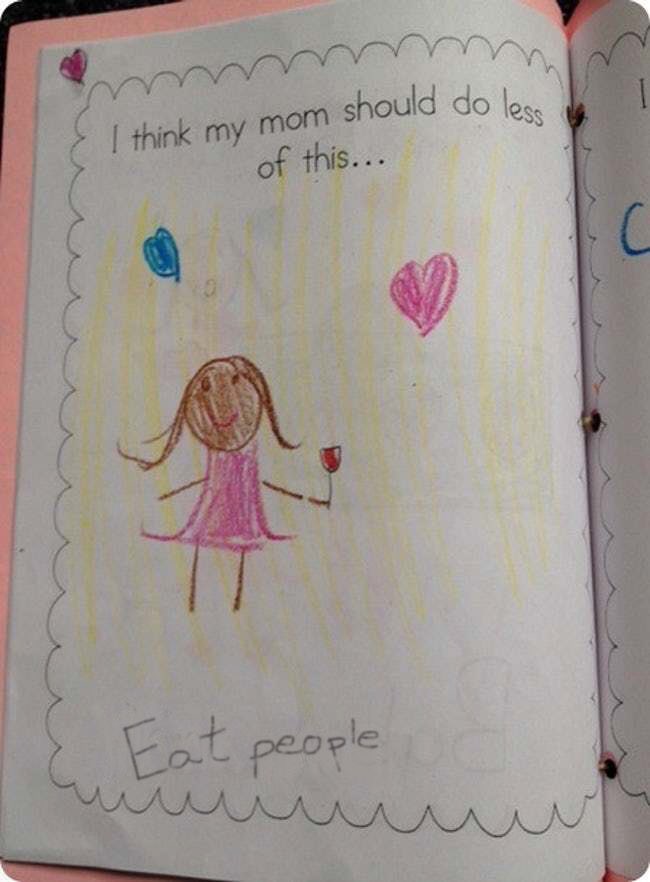 I think my mom should do less
of this...
Eat people